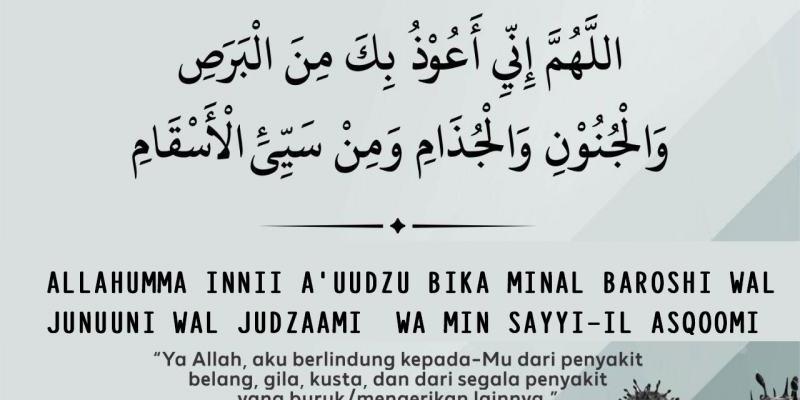 اللَّهُمَّ إِنِّيِ أَعُوْذُ بِكَ مِنَ الْبَرَصِ
وَالْجُنُوْنِ وَالْجُذَامِ وَمِنْ سَيِّئِ الْأَسْقَامِ
ALLAHUMMA INNII A'UUDZU BIKA MINAL BAROSHI WAL
JUNUUNI WAL JUDZAAMI WA MIN SAYYI-IL ASQOOMI
“Ya Allah, aku berlindung kepada-Mu dari penyakit
belang, gila, kusta, dan dari segala penyakit
yang buruk/mengerikan lainnya.”